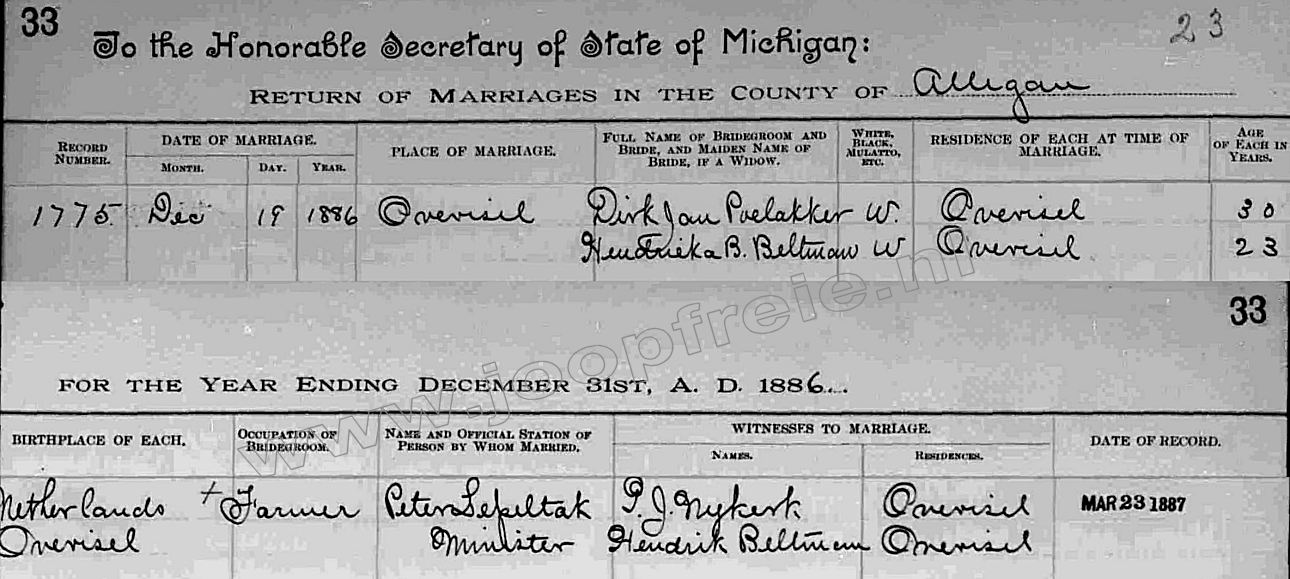 33
23
To the Honorable Secretary of State of Michigan:
RETURN OF MARRIAGES IN THE COUNTY OF Allegan
RECORD NUMBER. DATE OF MARRIAGE. MONTH. DAY. YEAR. PLACE OF MARRIAGE. FULL NAME OF BRIDEGROOM AND BRIDE, AND MAIDEN NAME OF BRIDE, IF A WIDOW. WHITE, BLACK, MULATTO, ETC. RESIDENCE OF EACH AT TIME OF MARRIAGE. AGE OF EACH IN YEARS.
1775 Dec 19 1886 Overisel Dirk Jan Poelakker W. Overisel 30
Hendrieka B. Beltman W Overisel 23
www.joopfreie.nl
33
FOR THE YEAR ENDING DECEMBER 31ST, A. D. 1886...
BIRTHPLACE OF EACH. OCCUPATION OF BRIDEGROOM. NAME AND OFFICIAL STATION OF PERSON BY WHOM MARRIED. WITNESSES TO MARRIAGE. NAMES. RESIDENCES. DATE OF RECORD.
Netherlands + Farmer Peter Lepeltak P. J. Nykerk Overisel MAR 23 1887
Overisel Minister Hendrik Beltman Overisel